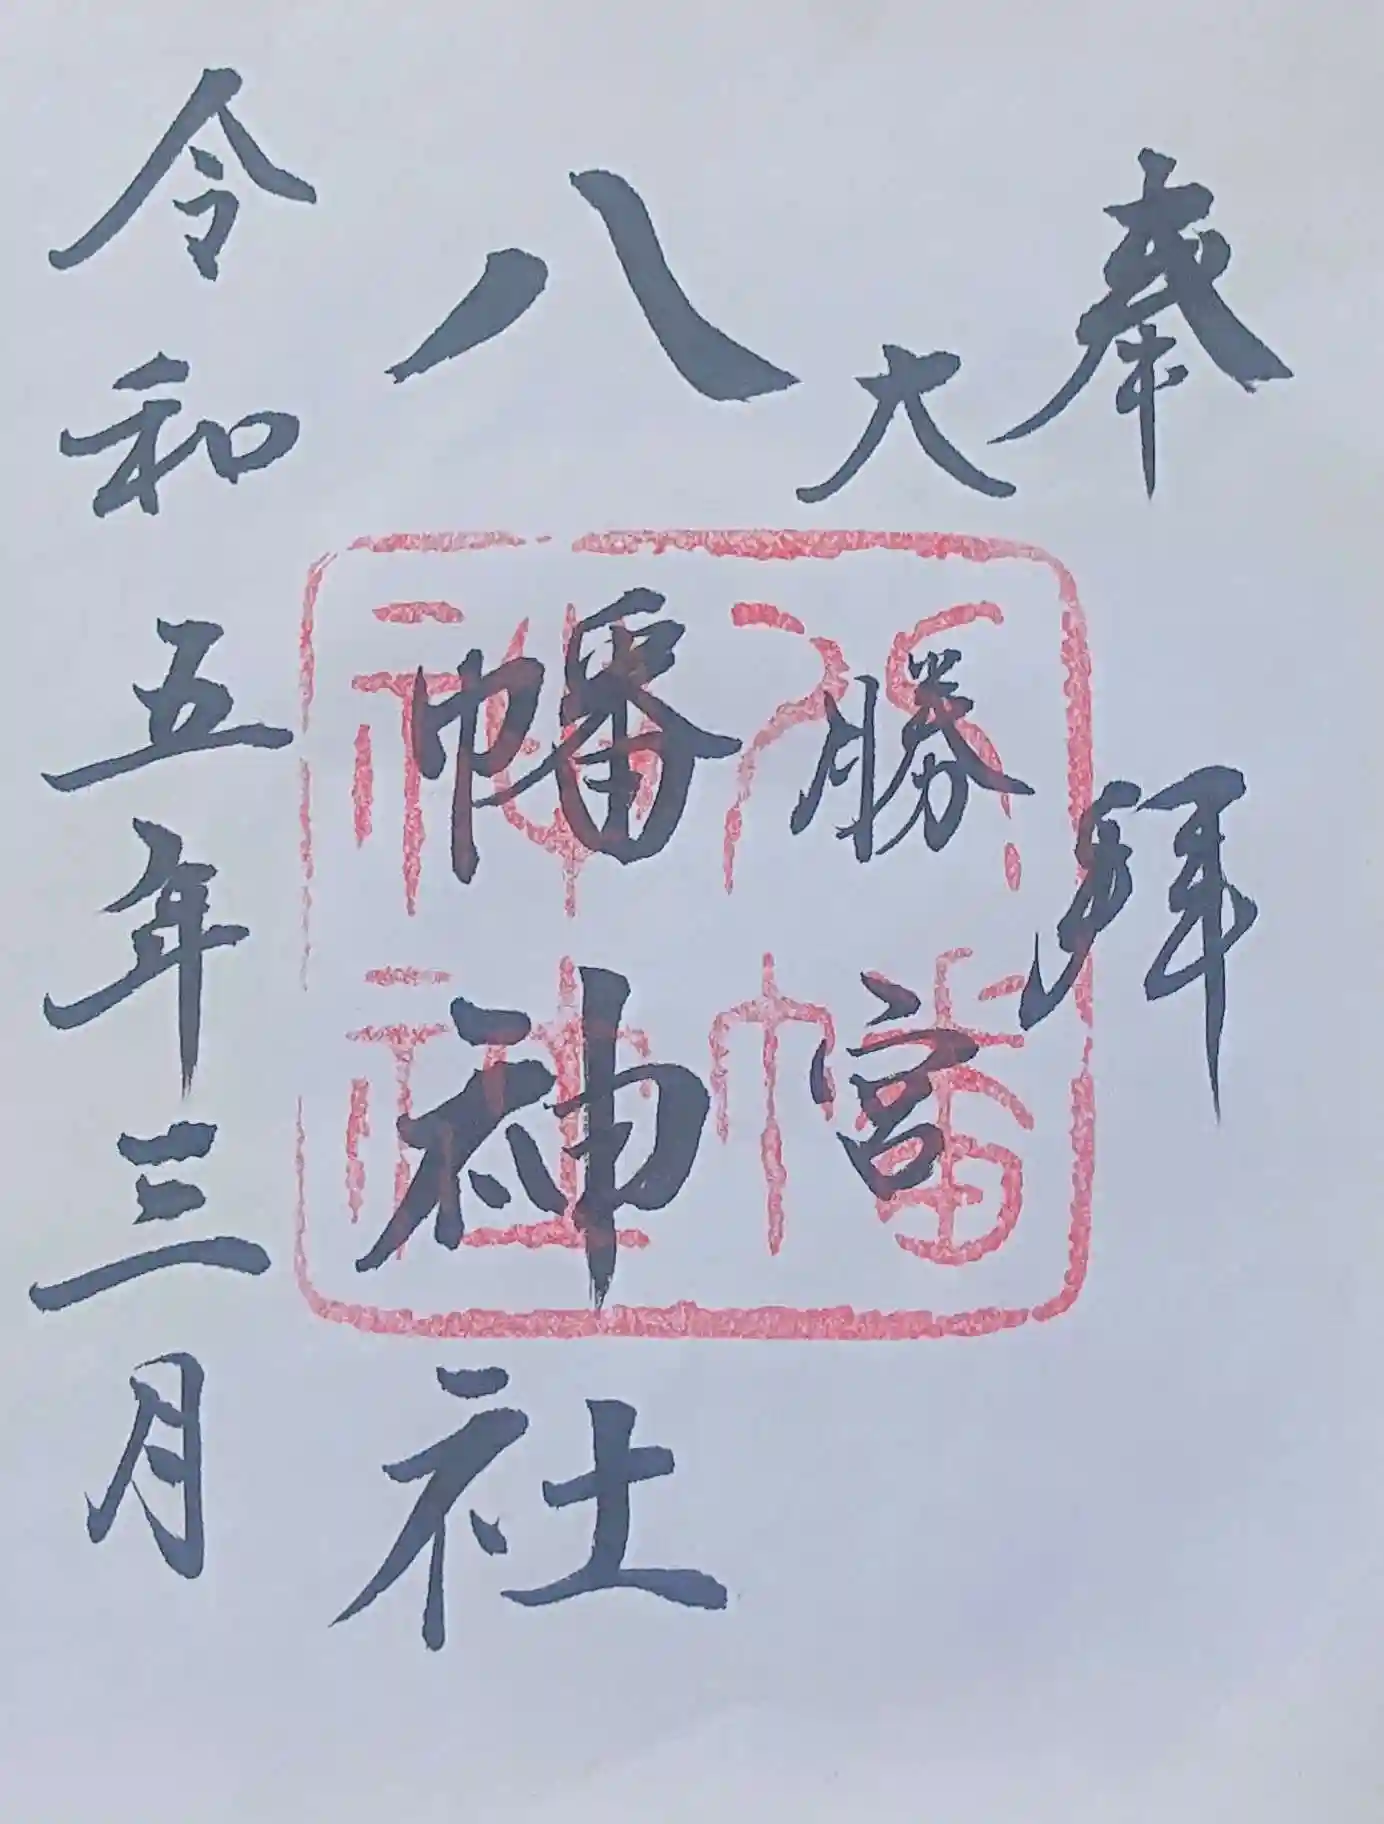 奉拝
大勝宮
八幡神社
令和五年三月
八幡
神社